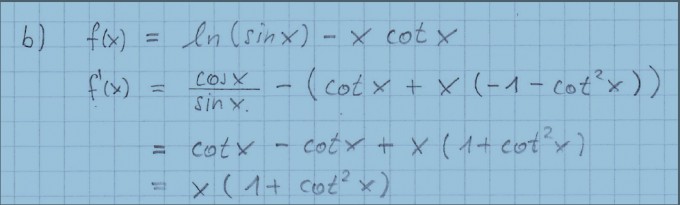 b) f(x) = ln (sin x) - x cot x
f'(x) = cos x / sin x. - (cot x + x (-1 - cot² x))
= cot x - cot x + x (1 + cot² x)
= x (1 + cot² x)